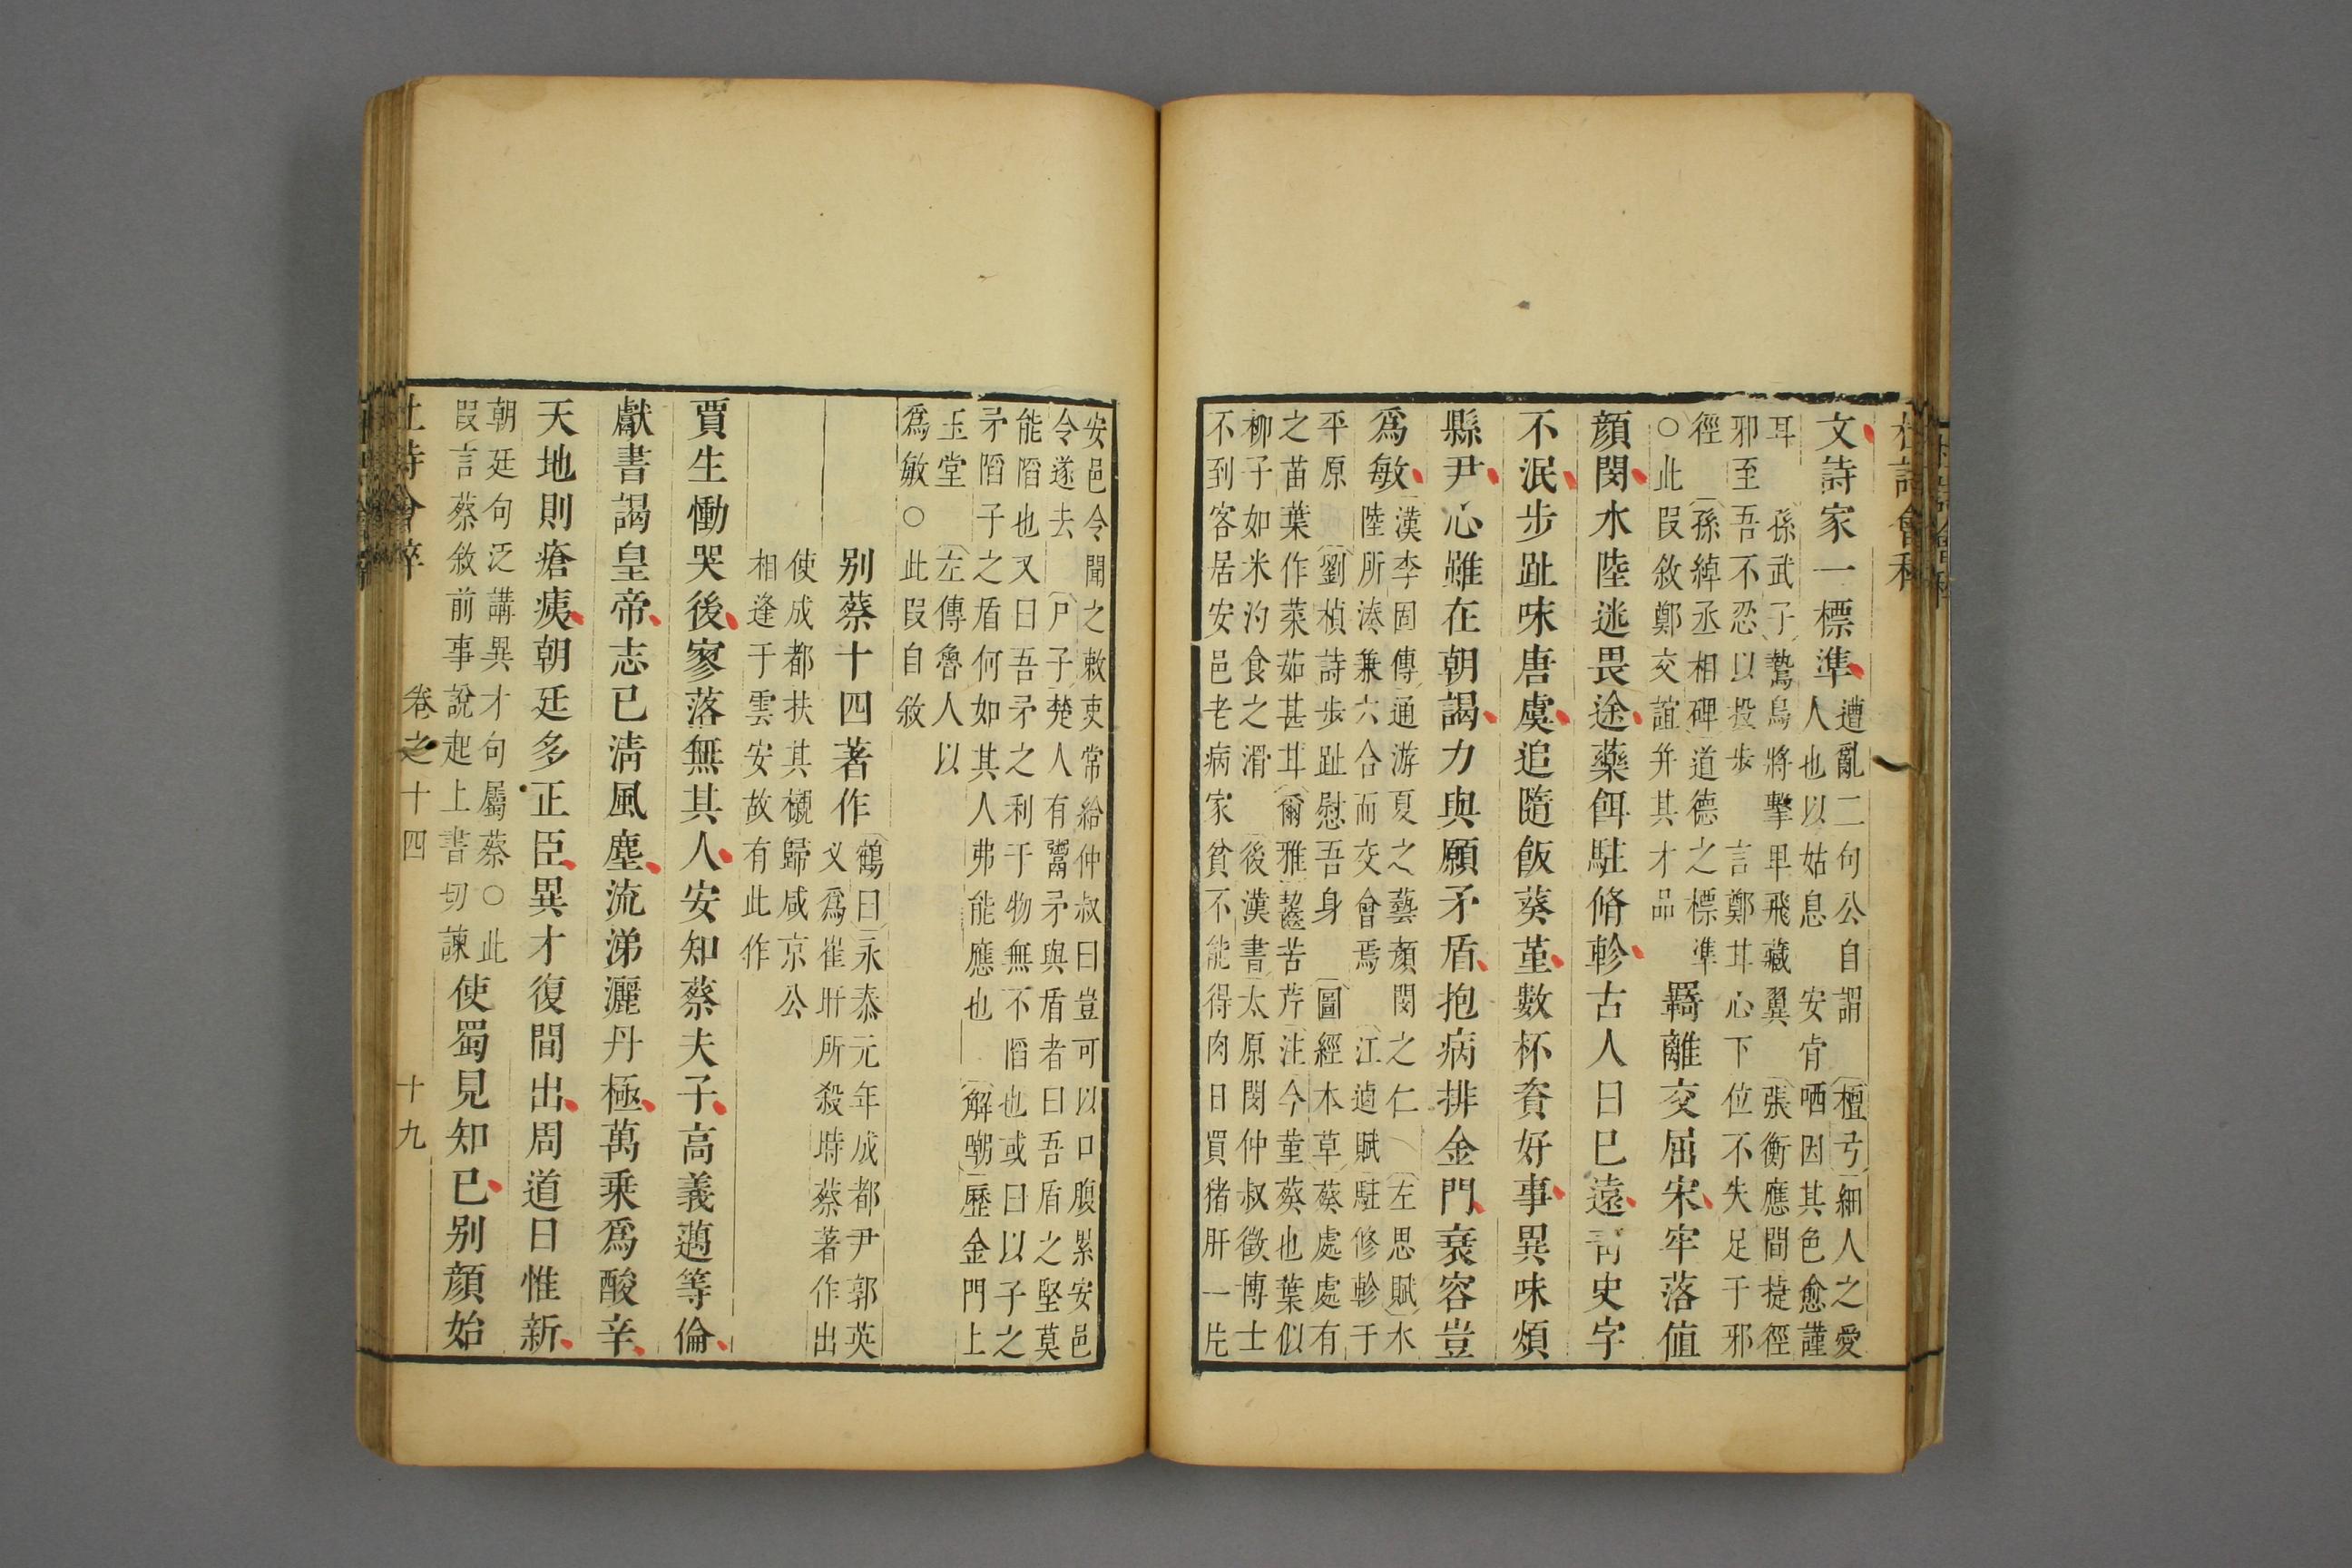 杜詩會稡
文詩家一標準遭亂二句公自謂檀弓細人之愛
人也以姑息安肯哂因其色愈謹
耳孫武子鷙鳥將擊卑飛藏翼張衡應間捷徑
邪至吾不忍以投步言鄭耳心下位不失足于邪
徑孫綽丞相碑道德之標準
○此叚敘鄭交誼并其才品羇離交屈宋牢落值
顔閔水陸迷畏途藥餌駐脩軫古人日已遠青史字
不泯步趾咏唐虞追隨飯葵堇數杯資好事異味煩
縣尹心雖在朝謁力與願矛盾抱病排金門衰容豈
爲敏漢李固傳通游夏之藝顔閔之仁左思賦水
陸所湊兼六合而交會焉江逌賦駐修軫于
平原劉楨詩步趾慰吾身圖經本草葵處處有
之苗葉作菜茹甚甘爾雅齧苦芹注今堇葵也葉似
柳子如米汋食之滑後漢書太原閔仲叔徵博士
不到客居安邑老病家貧不能得肉日買猪肝一片
安邑令聞之敕吏常給仲叔曰豈可以口腹累安邑
令遂去尸子楚人有鬻矛與盾者曰吾盾之堅莫
能䧟也又曰吾矛之利于物無不䧟也或曰以子之
矛䧟子之盾何如其人弗能應也解嘲歷金門上
玉堂左傳魯人以
爲敏○此叚自敘
别蔡十四著作鶴曰永泰元年成都尹郭英
乂爲崔旰所殺時蔡著作出
使成都扶其櫬歸咸京公
相逢于雲安故有此作
賈生慟哭後寥落無其人安知蔡夫子高義邁等倫
獻書謁皇帝志已淸風塵流涕灑丹極萬乘爲酸辛
天地則瘡痍朝廷多正臣異才復間出周道日惟新
朝廷句泛講異才句屬蔡○此
叚言蔡敘前事說起上書切諫使蜀見知已别顔始
杜詩會稡 卷之十四 十九